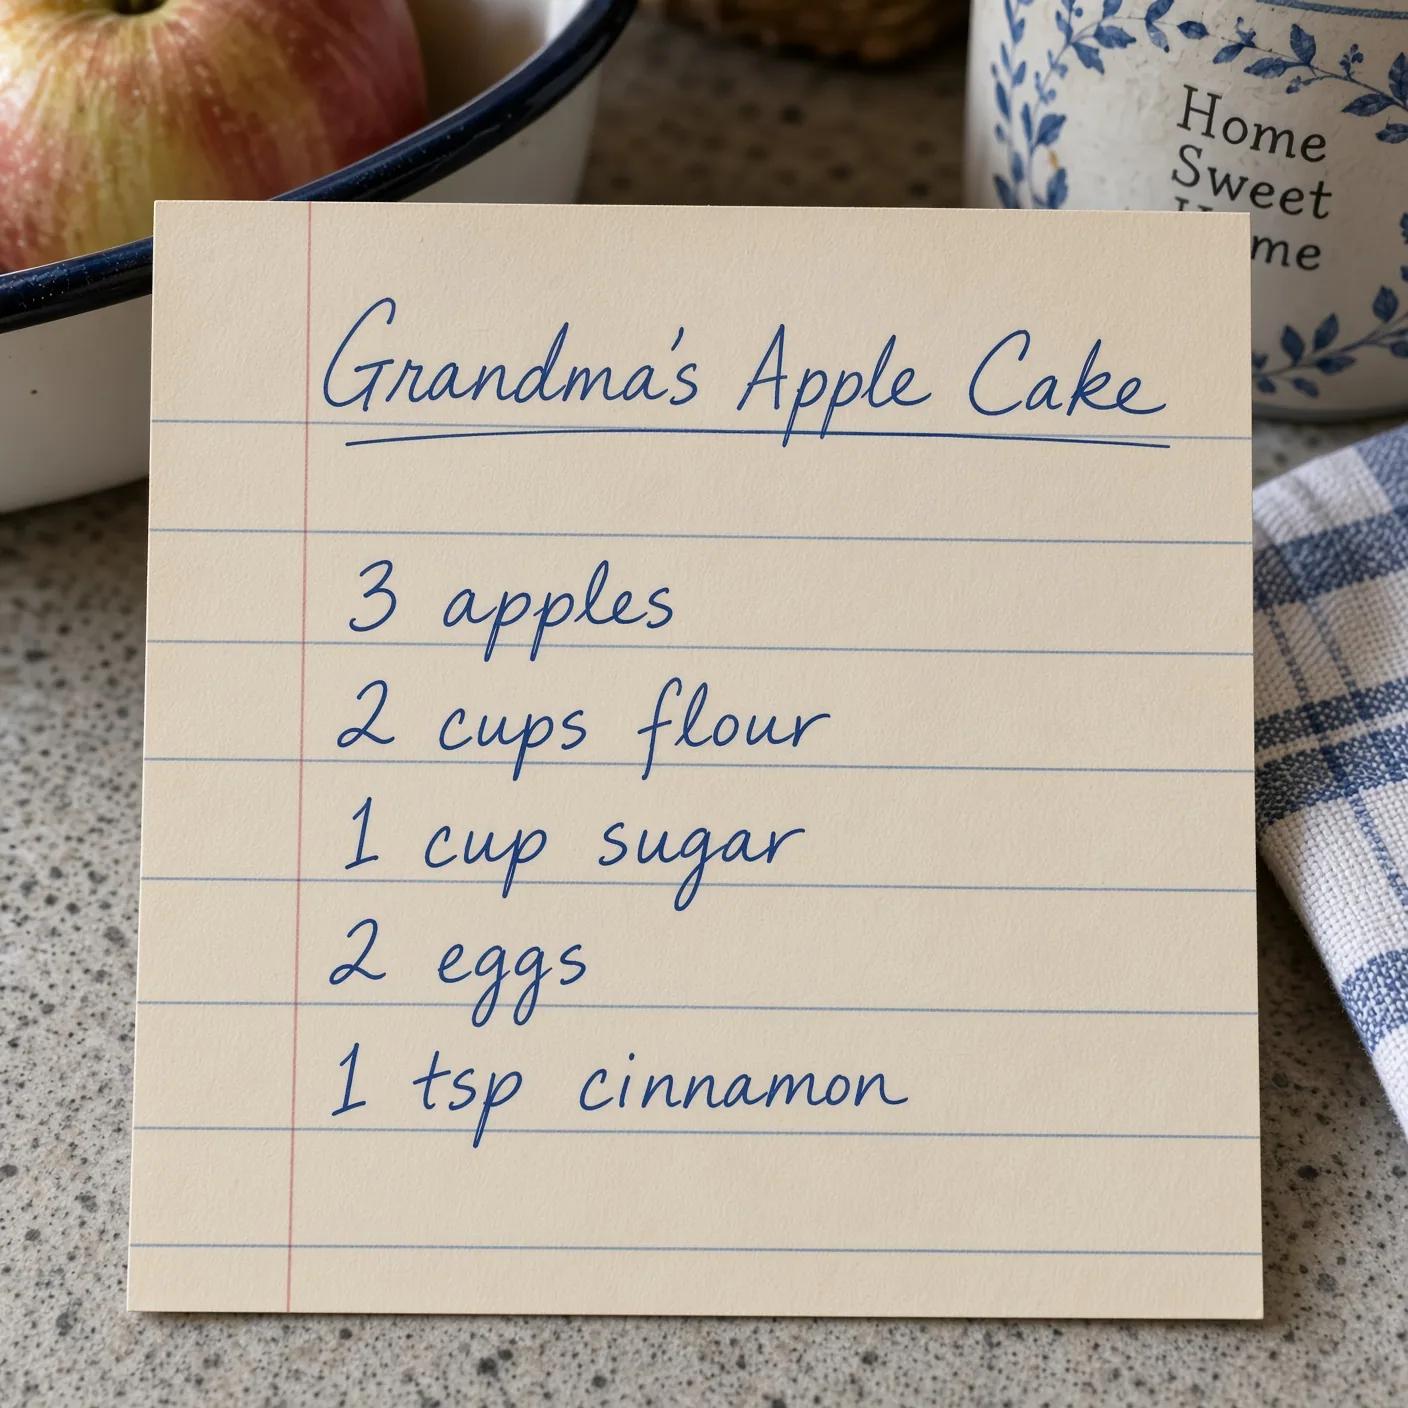 Home
Sweet
Grandma's Apple Cake
3 apples
2 cups flour
1 cup sugar
2 eggs
1 tsp cinnamon